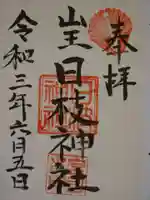 奉拝
山王日枝神社
令和三年六月五日